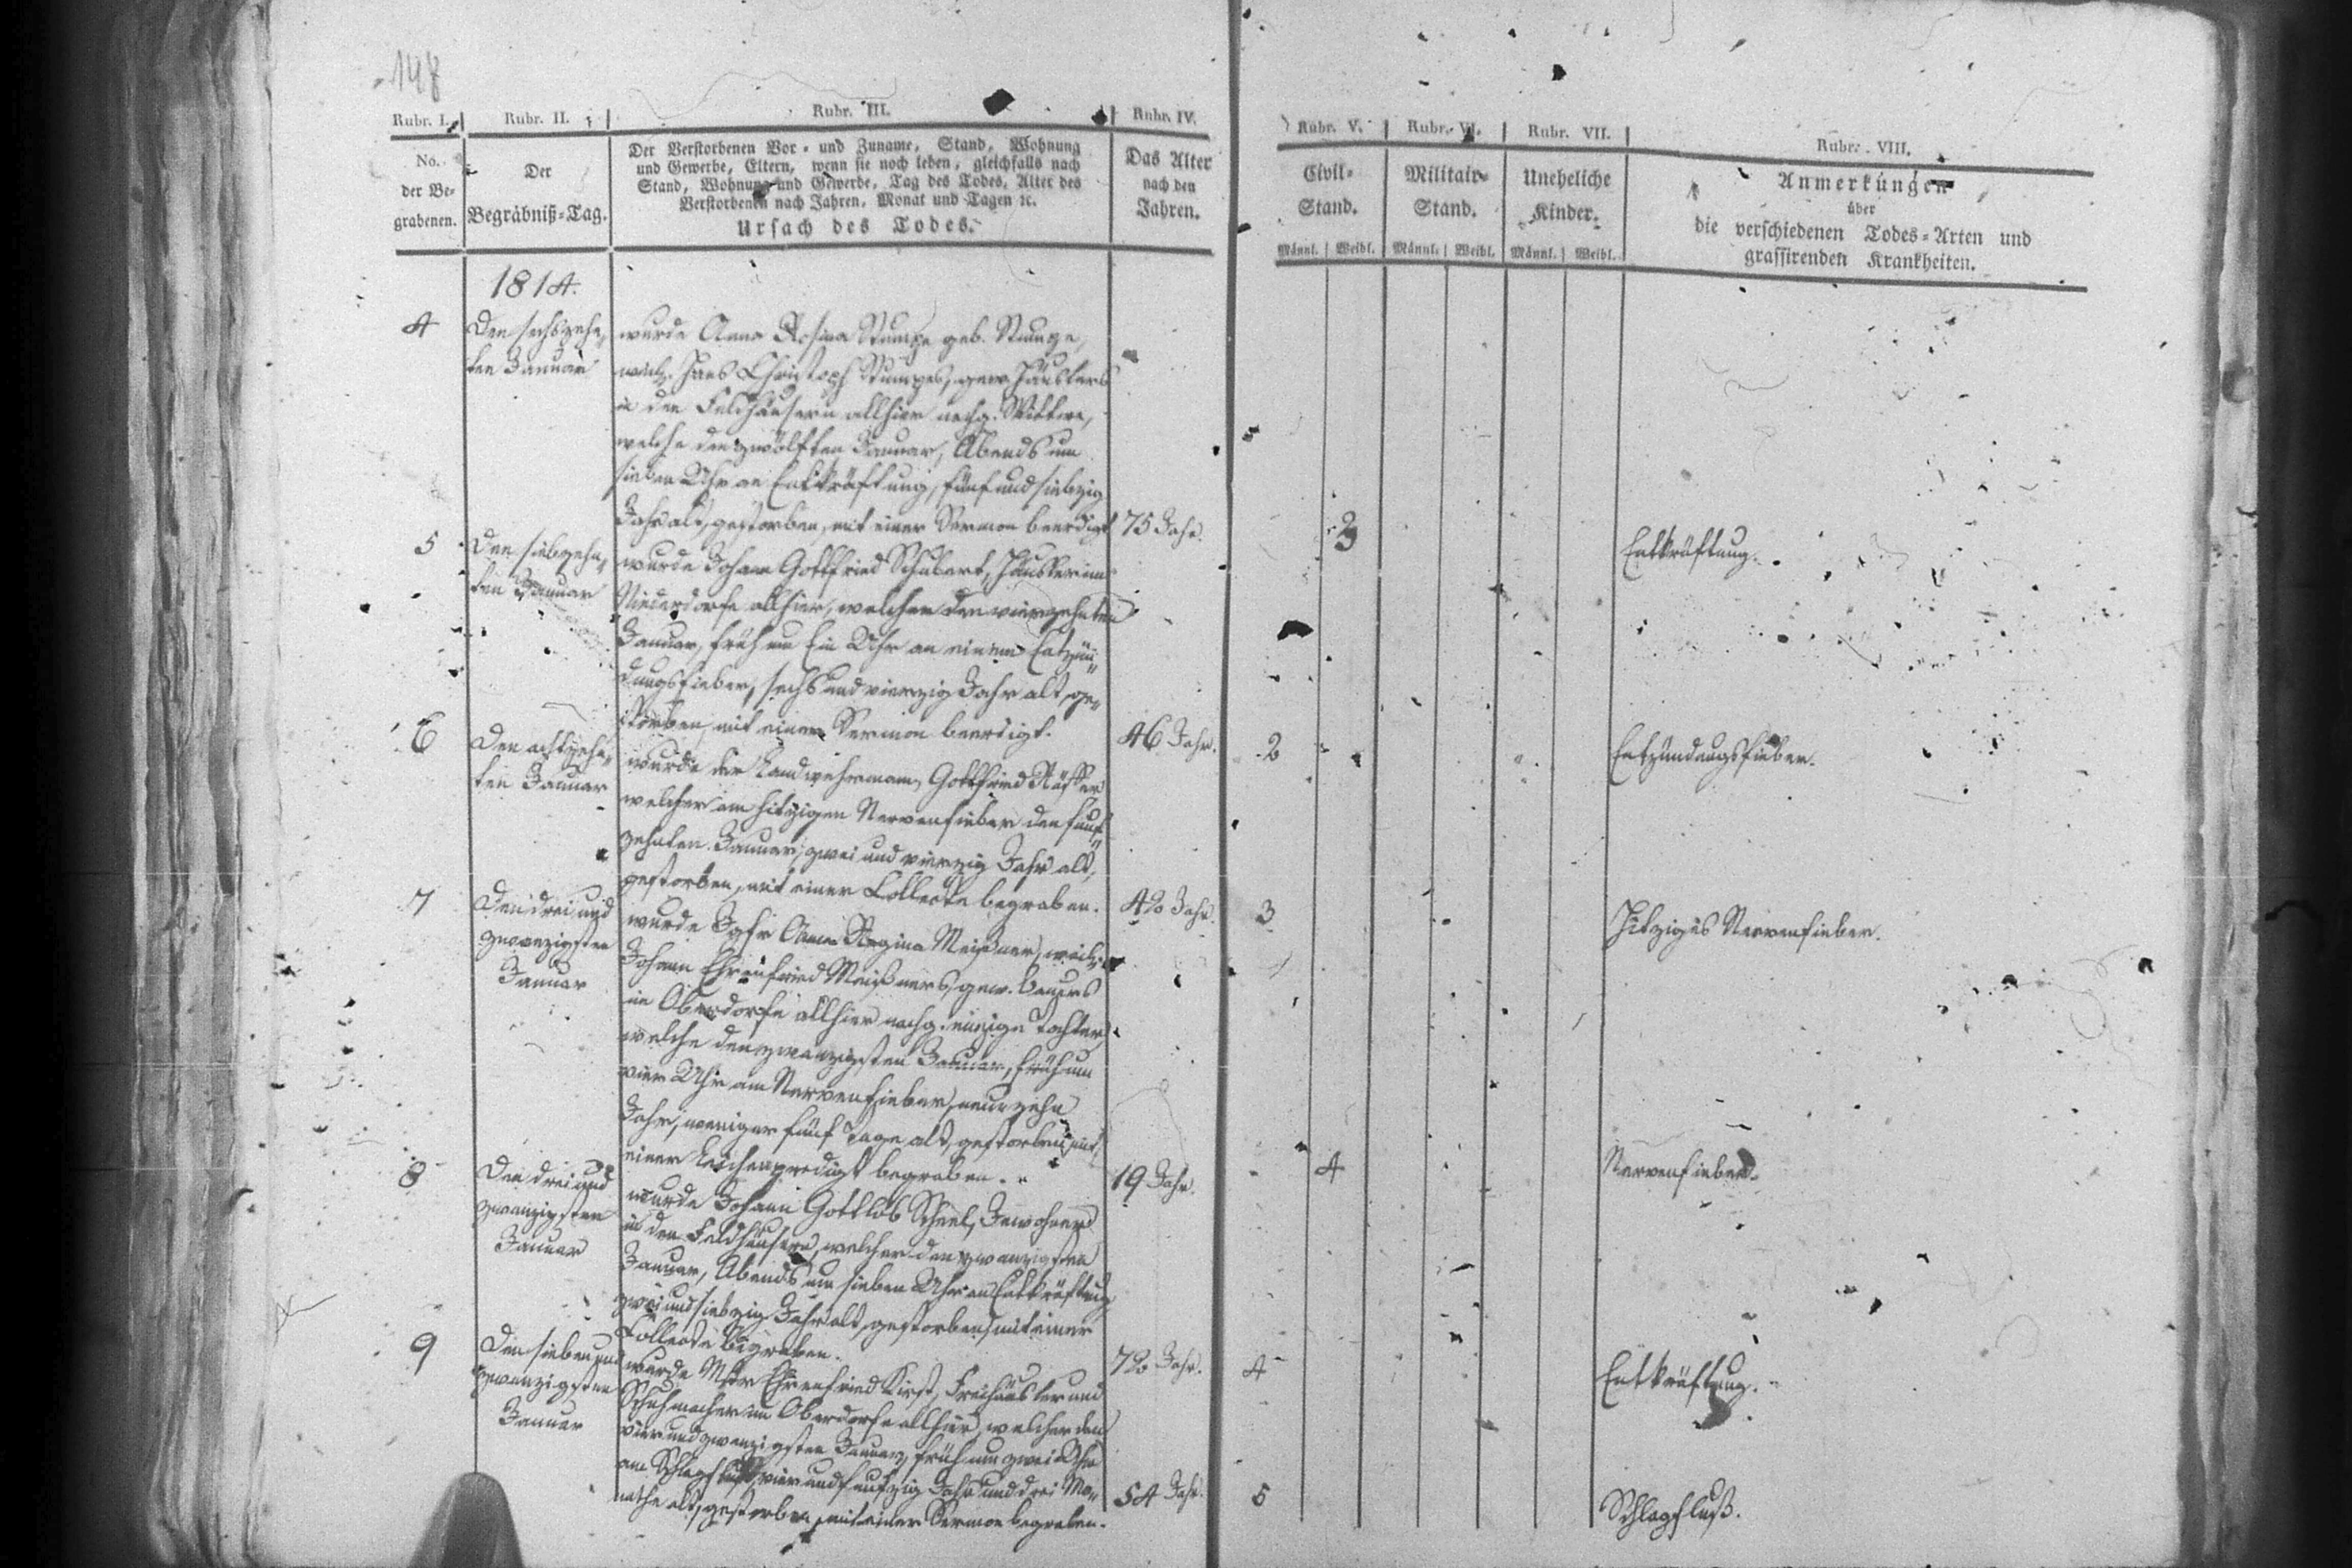 148
Rubr. I. Rubr. II. Rubr. III. Rubr. IV. Rubr. V. Rubr. VI. Rubr. VII. Rubr. VIII.
No.
der Be-
grabenen.
Der
Begräbniß-Tag.
Der Verstorbenen Vor- und Zuname, Stand, Wohnung
und Gewerbe, Eltern, wenn sie noch leben, gleichfalls nach
Stand, Wohnung und Gewerbe, Tag des Todes, Alter des
Verstorbenen nach Jahren, Monat und Tagen ꝛc.
Ursach des Todes.
Das Alter
nach den
Jahren.
Civil-
Stand.
Männl. Weibl.
Militair-
Stand.
Männl. Weibl.
Uneheliche
Kinder.
Männl. Weibl.
Anmerkungen
über
die verschiedenen Todes-Arten und
grassirenden Krankheiten.
1814.
4
Den sechszehn-
ten Januar
wurde Anna Rosina Stumpe geb. Stumpe,
weil. Hans Christoph Stumpes, gew. Häuslers
in den Feldhäusern allhier nachg. Wittwe,
welche den zwölften Januar, Abends um
sieben Uhr an Entkräftung, fünf und siebzig
Jahr alt, gestorben, mit einer Sermon beerdigt
75 Jahr.
3
Entkräftung.
5
Den siebzehn-
ten Januar
wurde Johann Gottfried Schubert, Häusler im
Niederdorfe allhier, welcher den vierzehnten
Januar, früh um Ein Uhr an einem Entzün-
dungsfieber, sechs und vierzig Jahr alt, ge-
storben, mit einer Sermon beerdigt.
46 Jahr.
2
Entzündungsfieber.
6
Den achtzehn-
ten Januar
wurde der Landwehrmann, Gottfried
welcher am hitzigen Nervenfieber den funf-
zehnten Januar, zwei und vierzig Jahr alt,
gestorben, mit einer Collecte begraben.
42 Jahr.
3
Hitziges Nervenfieber.
7
Den drei und
zwanzigsten
Januar
wurde Jgfr Anna Regina Meißner, weil.
Johann Ehrenfried Meißners, gew. Bauers
im Oberdorfe allhier nachg. einzige Tochter,
welche den zwanzigsten Januar, früh um
vier Uhr am Nervenfieber, neunzehn
Jahr, weniger fünf Tage alt, gestorben, mit
einer Leichenpredigt begraben.
19 Jahr.
4
Nervenfieber.
8
Den drei und
zwanzigsten
Januar
wurde Johann Gottlob Scheel, Inwohner
in den Feldhäusern, welcher den zwanzigsten
Januar, Abends um sieben Uhr an Entkräftung
zwei und siebzig Jahr alt, gestorben, mit einer
Collecte begraben.
72 Jahr.
4
Entkräftung.
9
Den sieben und
zwanzigsten
Januar
wurde Mstr Ehrenfried Kirst, Freihäusler und
Schuhmacher im Oberdorfe allhier, welcher den
vier und zwanzigsten Januar, früh um zwei Uhr
am Schlagfluß, vier und funfzig Jahr und drei Mo-
nathe alt, gestorben, mit einer Sermon begraben.
54 Jahr.
5
Schlagfluß.